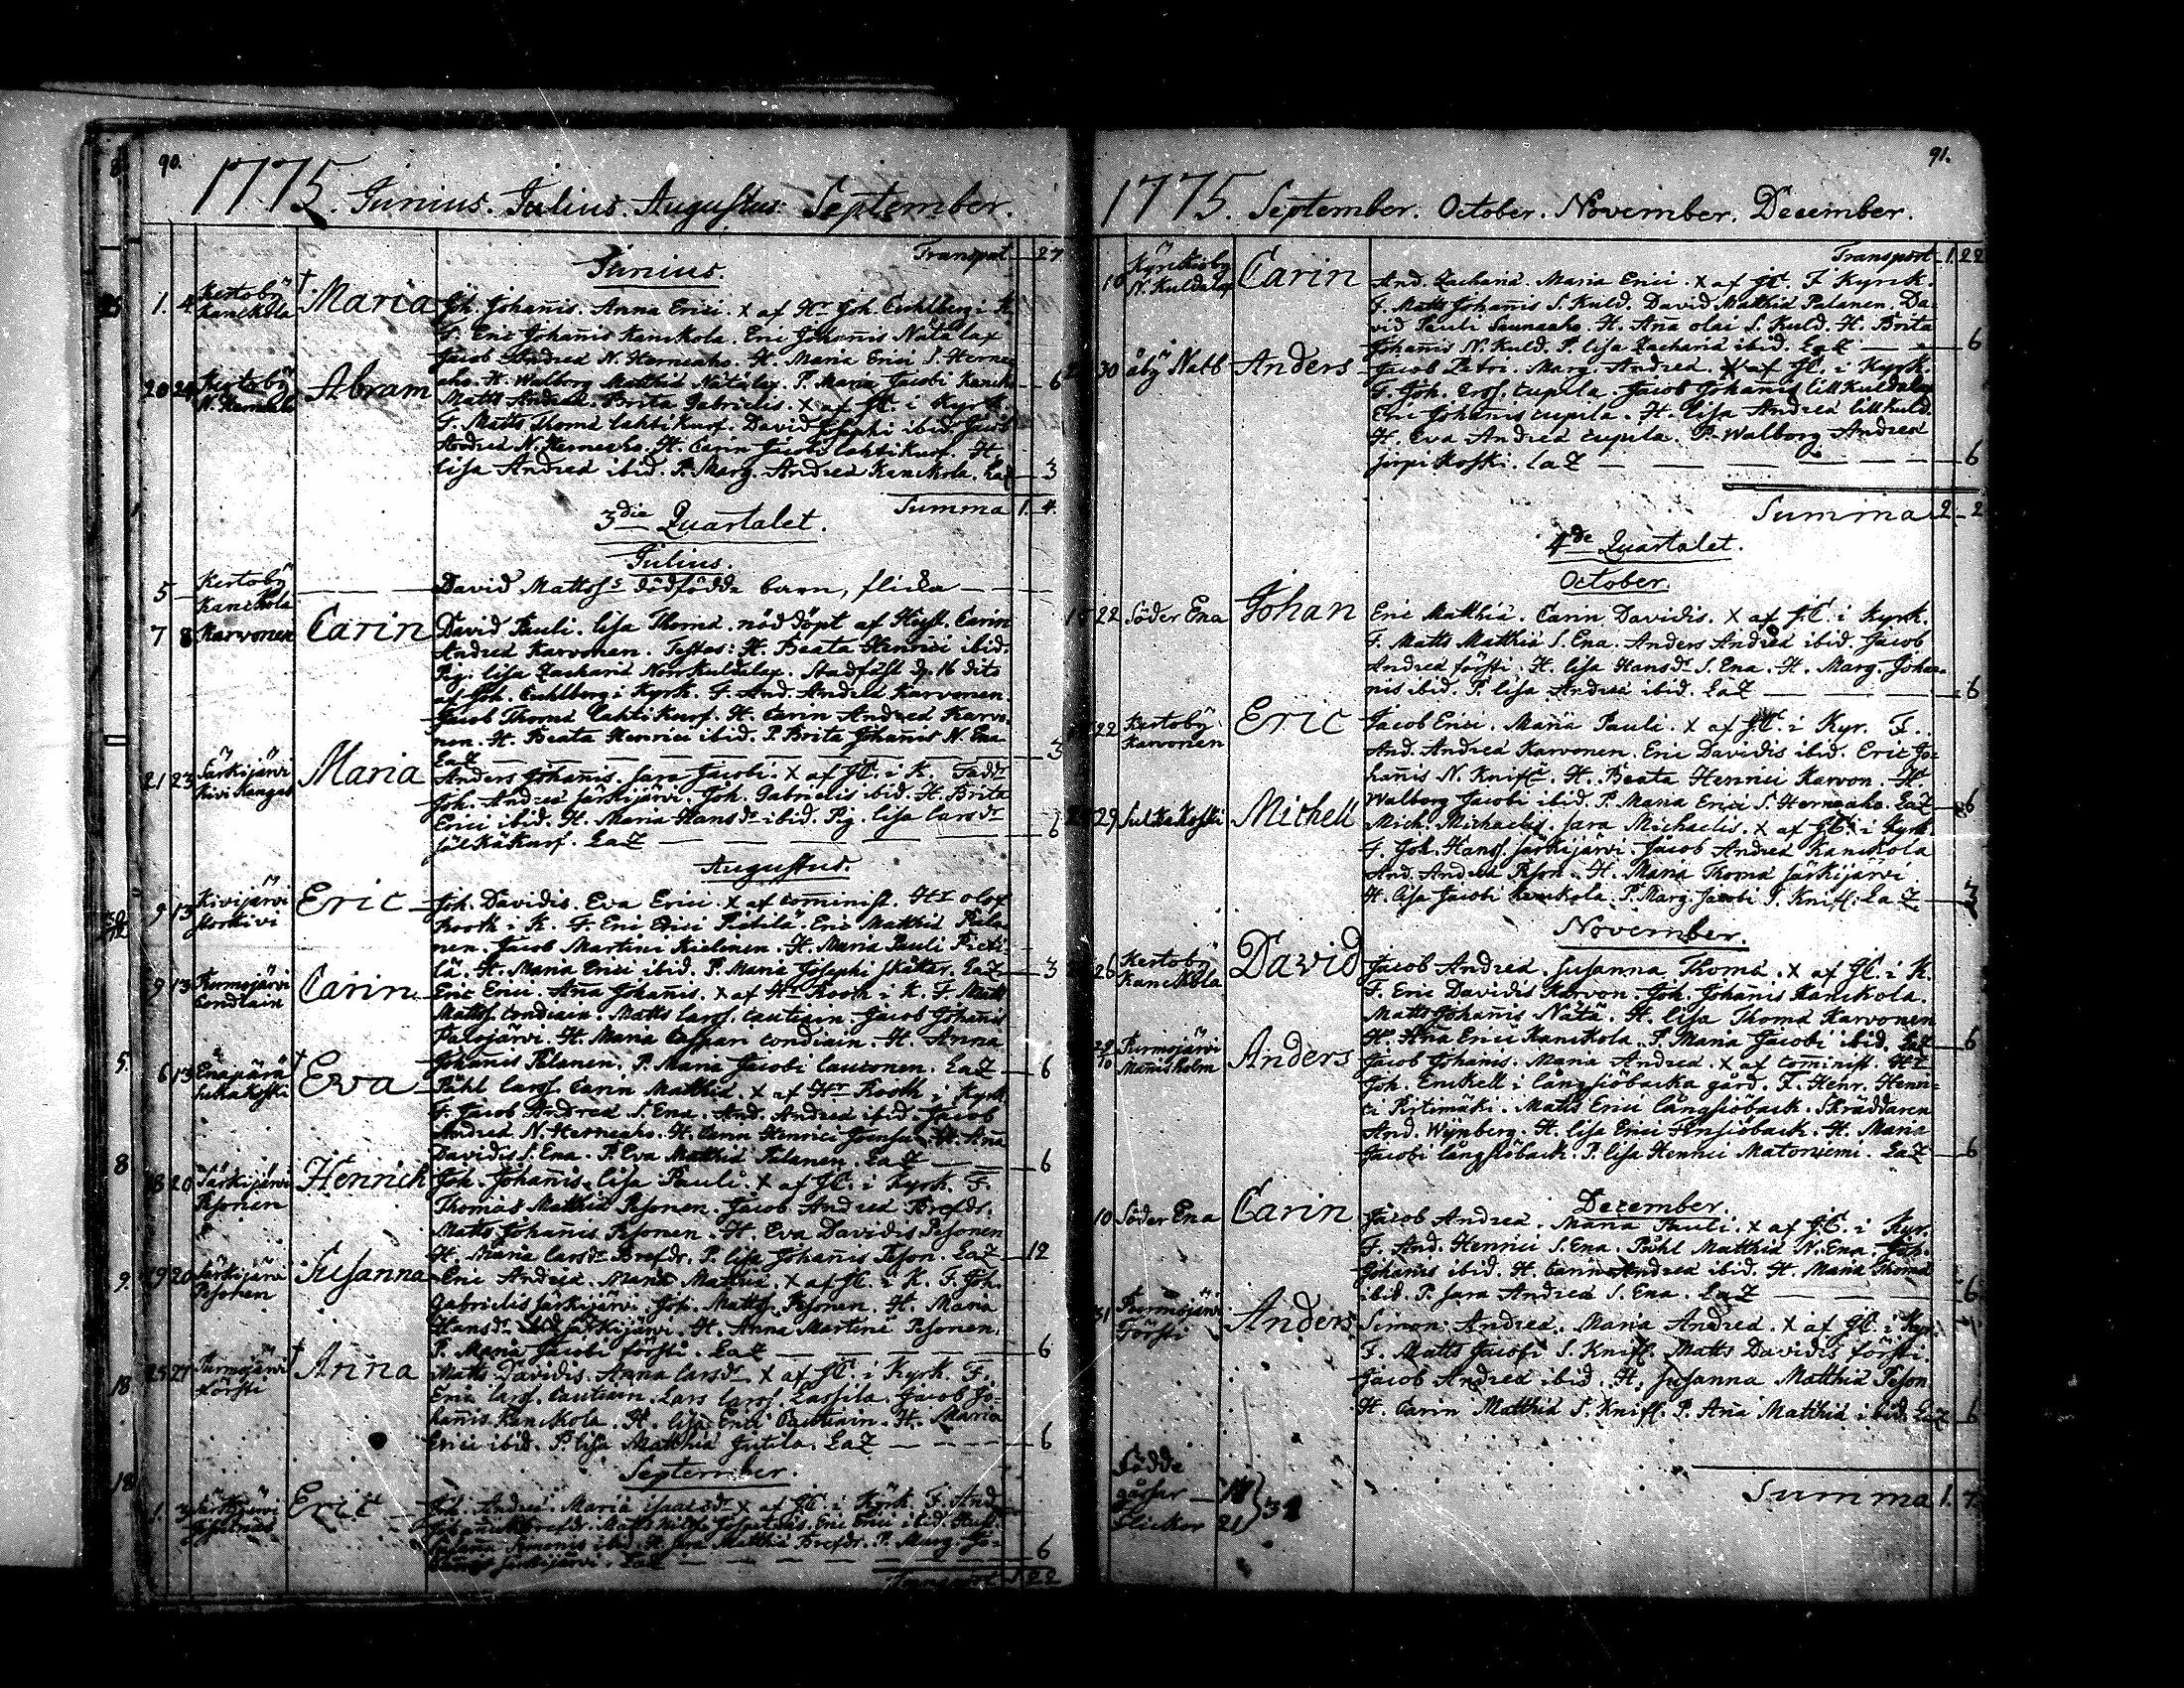 90.
1775. Junius. Julius. Augustus. September.
Transport 27
Junius.
1. 4 Kertobÿ Kanckola † Maria Joh. Johanis. Anna Erici. x af Hr Joh. Cuhlberg i K.
F. Eric Johanis Kanckola. Eric Johanis Natalax
Jacob Andreæ N. Herneaho. H. Maria Erici S. Herne
aho. H. Walborg Matthiæ Natalax. P. Maria Jacobi Kanck. 6
20 24 Kertobÿ Abram Matts Andreæ. Brita Gabrielis. x af JC. i Kyrk.
F. Matts Thomæ lahtikurf. David Josephi ibid. Jacob
Andreæ N. Herneaho. H. Carin Jacobi lahtikurf. H.
Lisa Andreæ ibid. P. Marg. Andreæ Kanckola. LaZ 3
Summa 1. 4.
3die Quartalet.
Julius.
5 Kertobÿ Kanckola David Mattss dödfödde barn, flicka
7 8 Karvonen Carin David Pauli. Lisa Thomæ. nöddöpt af Hust. Carin
Andreæ Karvonen. Testes: H. Beata Henrici ibid.
Pig. Lisa Zachariæ Norrkuldalax. Stadfäst d. 16 dito
af Joh. Cuhlberg i Kyrk. F. And. Andreæ Karvonen.
Jacob Thomæ lahtikurf. H. Carin Andreæ Karvo-
nen. H. Beata Henrici ibid. P. Brita Johanis N. Ena
LaZ 3
21 23 Särkijärvi Kivikangas Maria Anders Johanis. Sara Jacobi. x af JC. i K. Fadd.
Joh. Andreæ Särkijärvi. Joh. Gabrielis ibid. H. Brita
Erici ibid. H. Maria Hansdr ibid. Pig. Lisa Larsdr
Sälkäkurf. LaZ 6
Augustus.
9 13 Kivijärvi Storkivi Eric Joh. Davidis. Eva Erici. x af cominist. Hr Olof
Rooth i K. F. Eric Erici Pietilä. Eric Matthiæ Pala-
nen. Jacob Martini Kielinen. H. Maria Pauli Pieti-
lä. H. Maria Erici ibid. P. Maria Josephi Skäter. LaZ 3
9 13 Purmojärvi Condiain Carin Eric Erici. Aña Johanis. x af Hr Rooth i K. F. Matts
Mattss. Condiain. Matts Larss. Cautiain. Jacob Johanis
Palojärvi. H. Maria Caspari Condiain. H. Anna
Johanis Palanen. P. Maria Jacobi Lauconen. LaZ 6
6 13 Enäjärvi † Eva Påhl Larss. Carin Matthiæ. x af Hr Rooth i Kyrk.
F. Jacob Andreæ S. Ena. And. Andreæ ibid. Jacob
Andreæ N. Herneaho. H. Carin Henrici H. Aña
Davidis S. Ena. P. Eva Matthiæ Palanen. LaZ 6
18 20 Särkijärvi Pesonen Henrich Joh. Johanis. Lisa Pauli. x af JC. i Kyrk. F.
Thomas Matthiæ Pesonen. Jacob Andreæ Brefdr.
Matts Johanis Pesonen. H. Eva Davidis Pesonen
H. Maria Larsdr Brefdr. P. Lisa Johanis Peson. LaZ 12
19 20 Särkijärvi Pesonen Susanna Eric Andreæ. Maria Matthiæ. x af JC. i K. F. Joh.
Gabrielis Särkijärvi. Joh. Mattss. Pesonen. H. Maria
Hansdr Särkijärvi. H. Anna Martini Pesonen.
P. Maria Jacobi Försti. LaZ 6
25 27 Purmojärvi Försti † Anna Matts Davidis. Anna Larsdr. x af JC. i Kyrk. F.
Eric Larss. Cautiain. Lars Larss. Lassila. Jacob Jo-
hanis Kanckola. H. Lisa Erici Cautiain. H. Maria
Erici ibid. P. Lisa Matthiæ Jutila. LaZ 6
September.
1. 3 Eric Joh. Andreæ. Maria Isaacsdr. x af JC. i Kyrk. F. And.
Johanis Brefdr. Matts Eric Erici ibid.
Simonis ibid. H. Sara Matthiæ Brefdr. P. Marg. Jo-
hanis Särkijärvi. LaZ 6
Transport 1 22
91.
1775. September. October. November. December.
Transport 1. 22
10 Kyrckiobÿ N. Kuldalax Carin And. Zachariæ. Maria Erici. x af JC. i Kyrk.
F. Matts Johanis S. Kuld. David Matthiæ Palanen. Da-
vid Pauli Saunaaho. H. Aña Olai S. Kuld. H. Brita
Johanis N. Kuld. P. Lisa Zachariæ ibid. LaZ 6
30 Åbÿ Natb Anders Jacob Petri. Marg. Andreæ. x af JC. i Kyrk.
F. Joh. Eross. Cupila. Jacob Johanis lillkuldalax
Eric Johanis Cupila. H. Lisa Andreæ lillkuld.
H. Eva Andreæ Cupila. P. Walborg Andreæ
Jirpikoski. LaZ 6
Summa 2 2
4de Quartalet.
October.
22 Söder Ena Johan Eric Matthiæ. Carin Davidis. x af JC. i Kyrk.
F. Matts Matthiæ S. Ena. Anders Andreæ ibid. Jacob
Andreæ Försti. H. Lisa Hansdr S. Ena. H. Marg. Joha-
nis ibid. P. Lisa Andreæ ibid. LaZ 6
22 Kertobÿ Karvonen Eric Jacob Erici. Maria Pauli. x af JC. i Kyr. F.
And. Andreæ Karvonen. Eric Davidis ibid. Eric Jo-
hanis N. Knif. H. Beata Henrici Karvon. H.
Walborg Jacobi ibid. P. Maria Erici S. Herneaho. LaZ 6
29 Sulkakoski Michell Mich. Michaelis. Sara Michaelis. x af JC. i Kyrk.
F. Joh. Hanss. Särkijärvi. Jacob Andreæ Kanckola
And. Andreæ Peson. H. Maria Thomæ Särkijärvi.
H. Lisa Jacobi Kanckola. P. Marg. Jacobi S. Knif. LaZ 3
November.
26 Kertobÿ Kanckola David Jacob Andreæ. Susanna Thomæ. x af JC. i K.
F. Eric Davidis Karvon. Joh. Johanis Kanckola.
Matts Johanis Nätä. H. Lisa Thomæ Karvonen
H. Aña Erici Kanckola. P. Maria Jacobi ibid. LaZ 6
Purmojärvi Månsholm Anders Jacob Johanis. Maria Andreæ. x af cominist. Hr
Joh. Enckell i Långsiöbacka gård. F. Henr. Henri-
ci Pirtimäki. Matts Erici Långsiöback. Skräddaren
And. Wÿnberg. H. Lisa Erici Långsiöback. H. Maria
Jacobi Långsiöback. P. Lisa Henrici Matoniemi. LaZ 6
December.
10 Söder Ena Carin Jacob Andreæ. Maria Pauli. x af JC. i Kyr.
F. And. Henrici S. Ena. Påhl Matthiæ N. Ena. Joh.
Johanis ibid. H. Carin Andreæ ibid. H. Maria Thomæ
ibid. P. Sara Andreæ S. Ena. LaZ 6
31 Purmojärvi Försti Anders Simon Andreæ. Maria Andreæ. x af JC. i Kyr.
F. Matts Jacobi S. Knif. Matts Davidis Försti.
Jacob Andreæ ibid. H. Susanna Matthiæ Peson.
H. Carin Matthiæ S. Knif. P. Aña Matthiæ ibid. LaZ 6
Födde
gåssar
Flickor 21
Summa 1. 7.